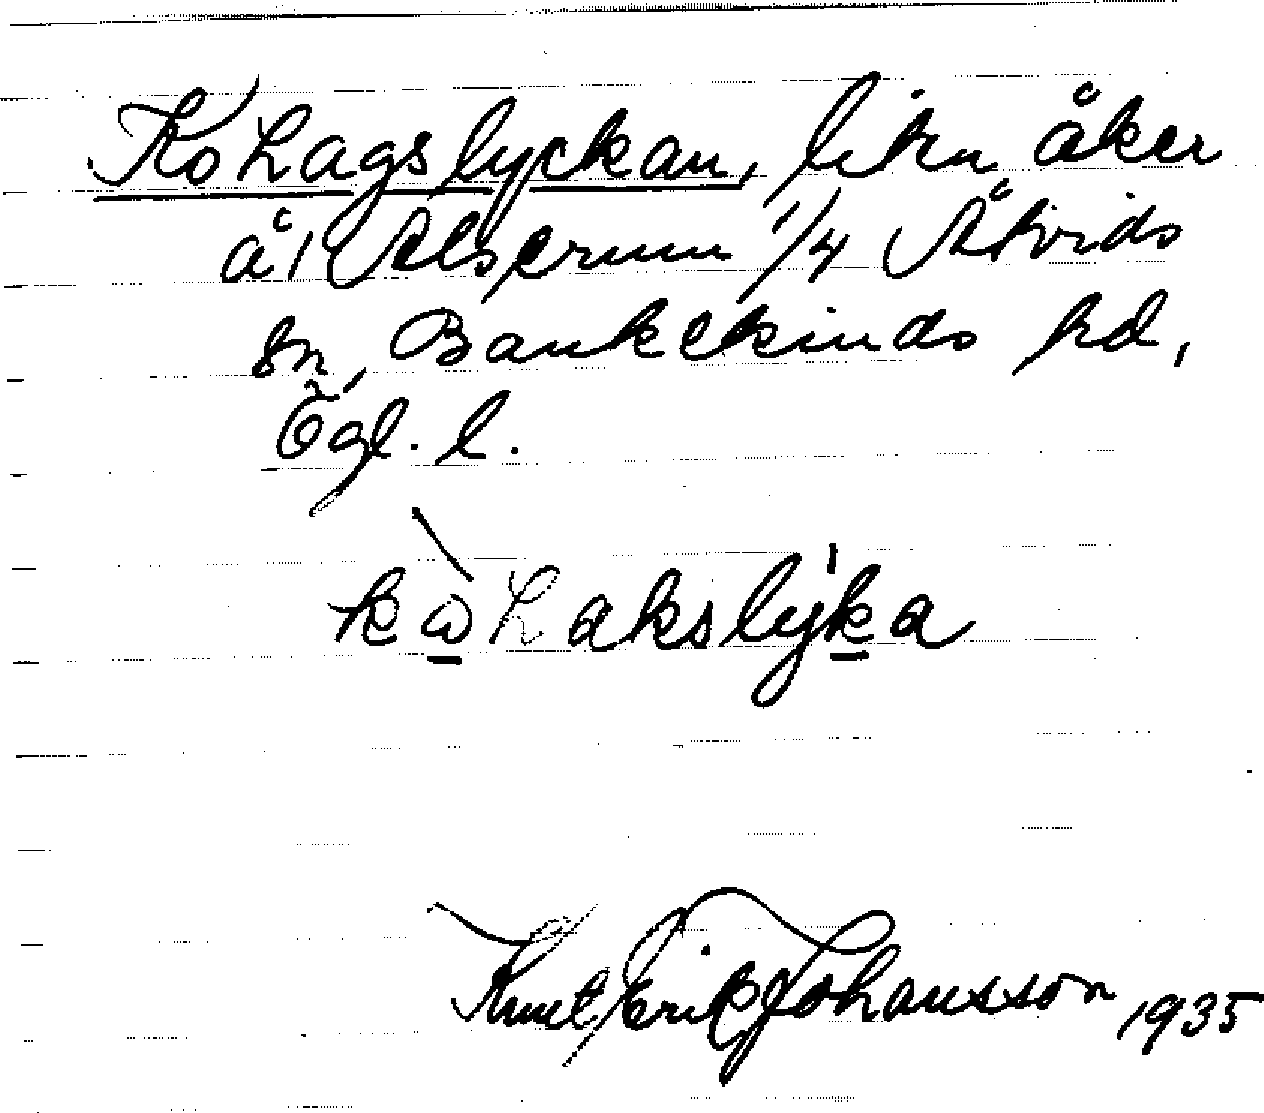 Kohagslyckan, liten åker
å Alserum 1/4 Åtvids
sn, Bankekinds hd,
Ögl. l.
kohakslyka
Knut Erik Johansson 1935